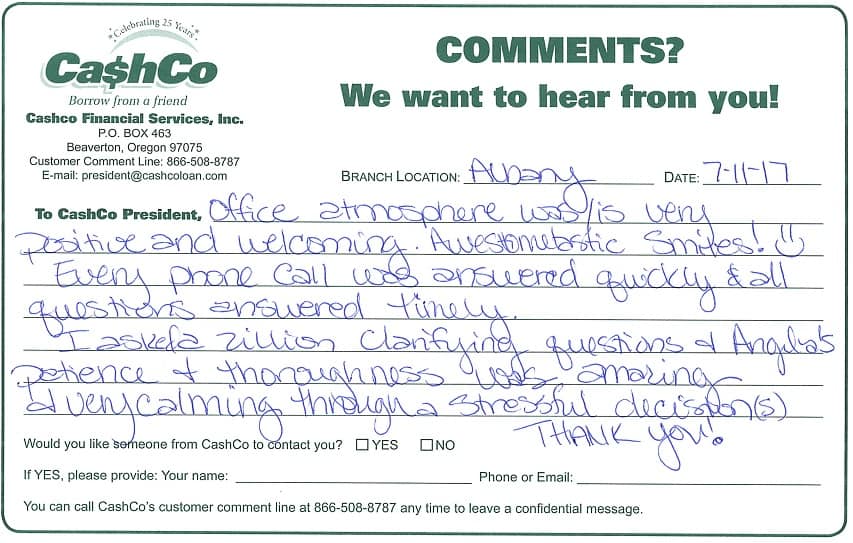 Celebrating 25 Years
Ca$hCo
Borrow from a friend
Cashco Financial Services, Inc.
P.O. BOX 463
Beaverton, Oregon 97075
Customer Comment Line: 866-508-8787
E-mail: president@cashcoloan.com
COMMENTS?
We want to hear from you!
BRANCH LOCATION: Albany DATE: 7-11-17
To CashCo President, Office atmosphere was/is very
positive and welcoming. Awesometastic Smiles!
Every phone call was answered quickly & all
questions answered timely.
I asked a zillion clarifying questions & Angelia's
patience & thoroughness was amazing
& very calming through a stressful decision(s)
THANK YOU!
Would you like someone from CashCo to contact you? YES NO
If YES, please provide: Your name: Phone or Email:
You can call CashCo's customer comment line at 866-508-8787 any time to leave a confidential message.